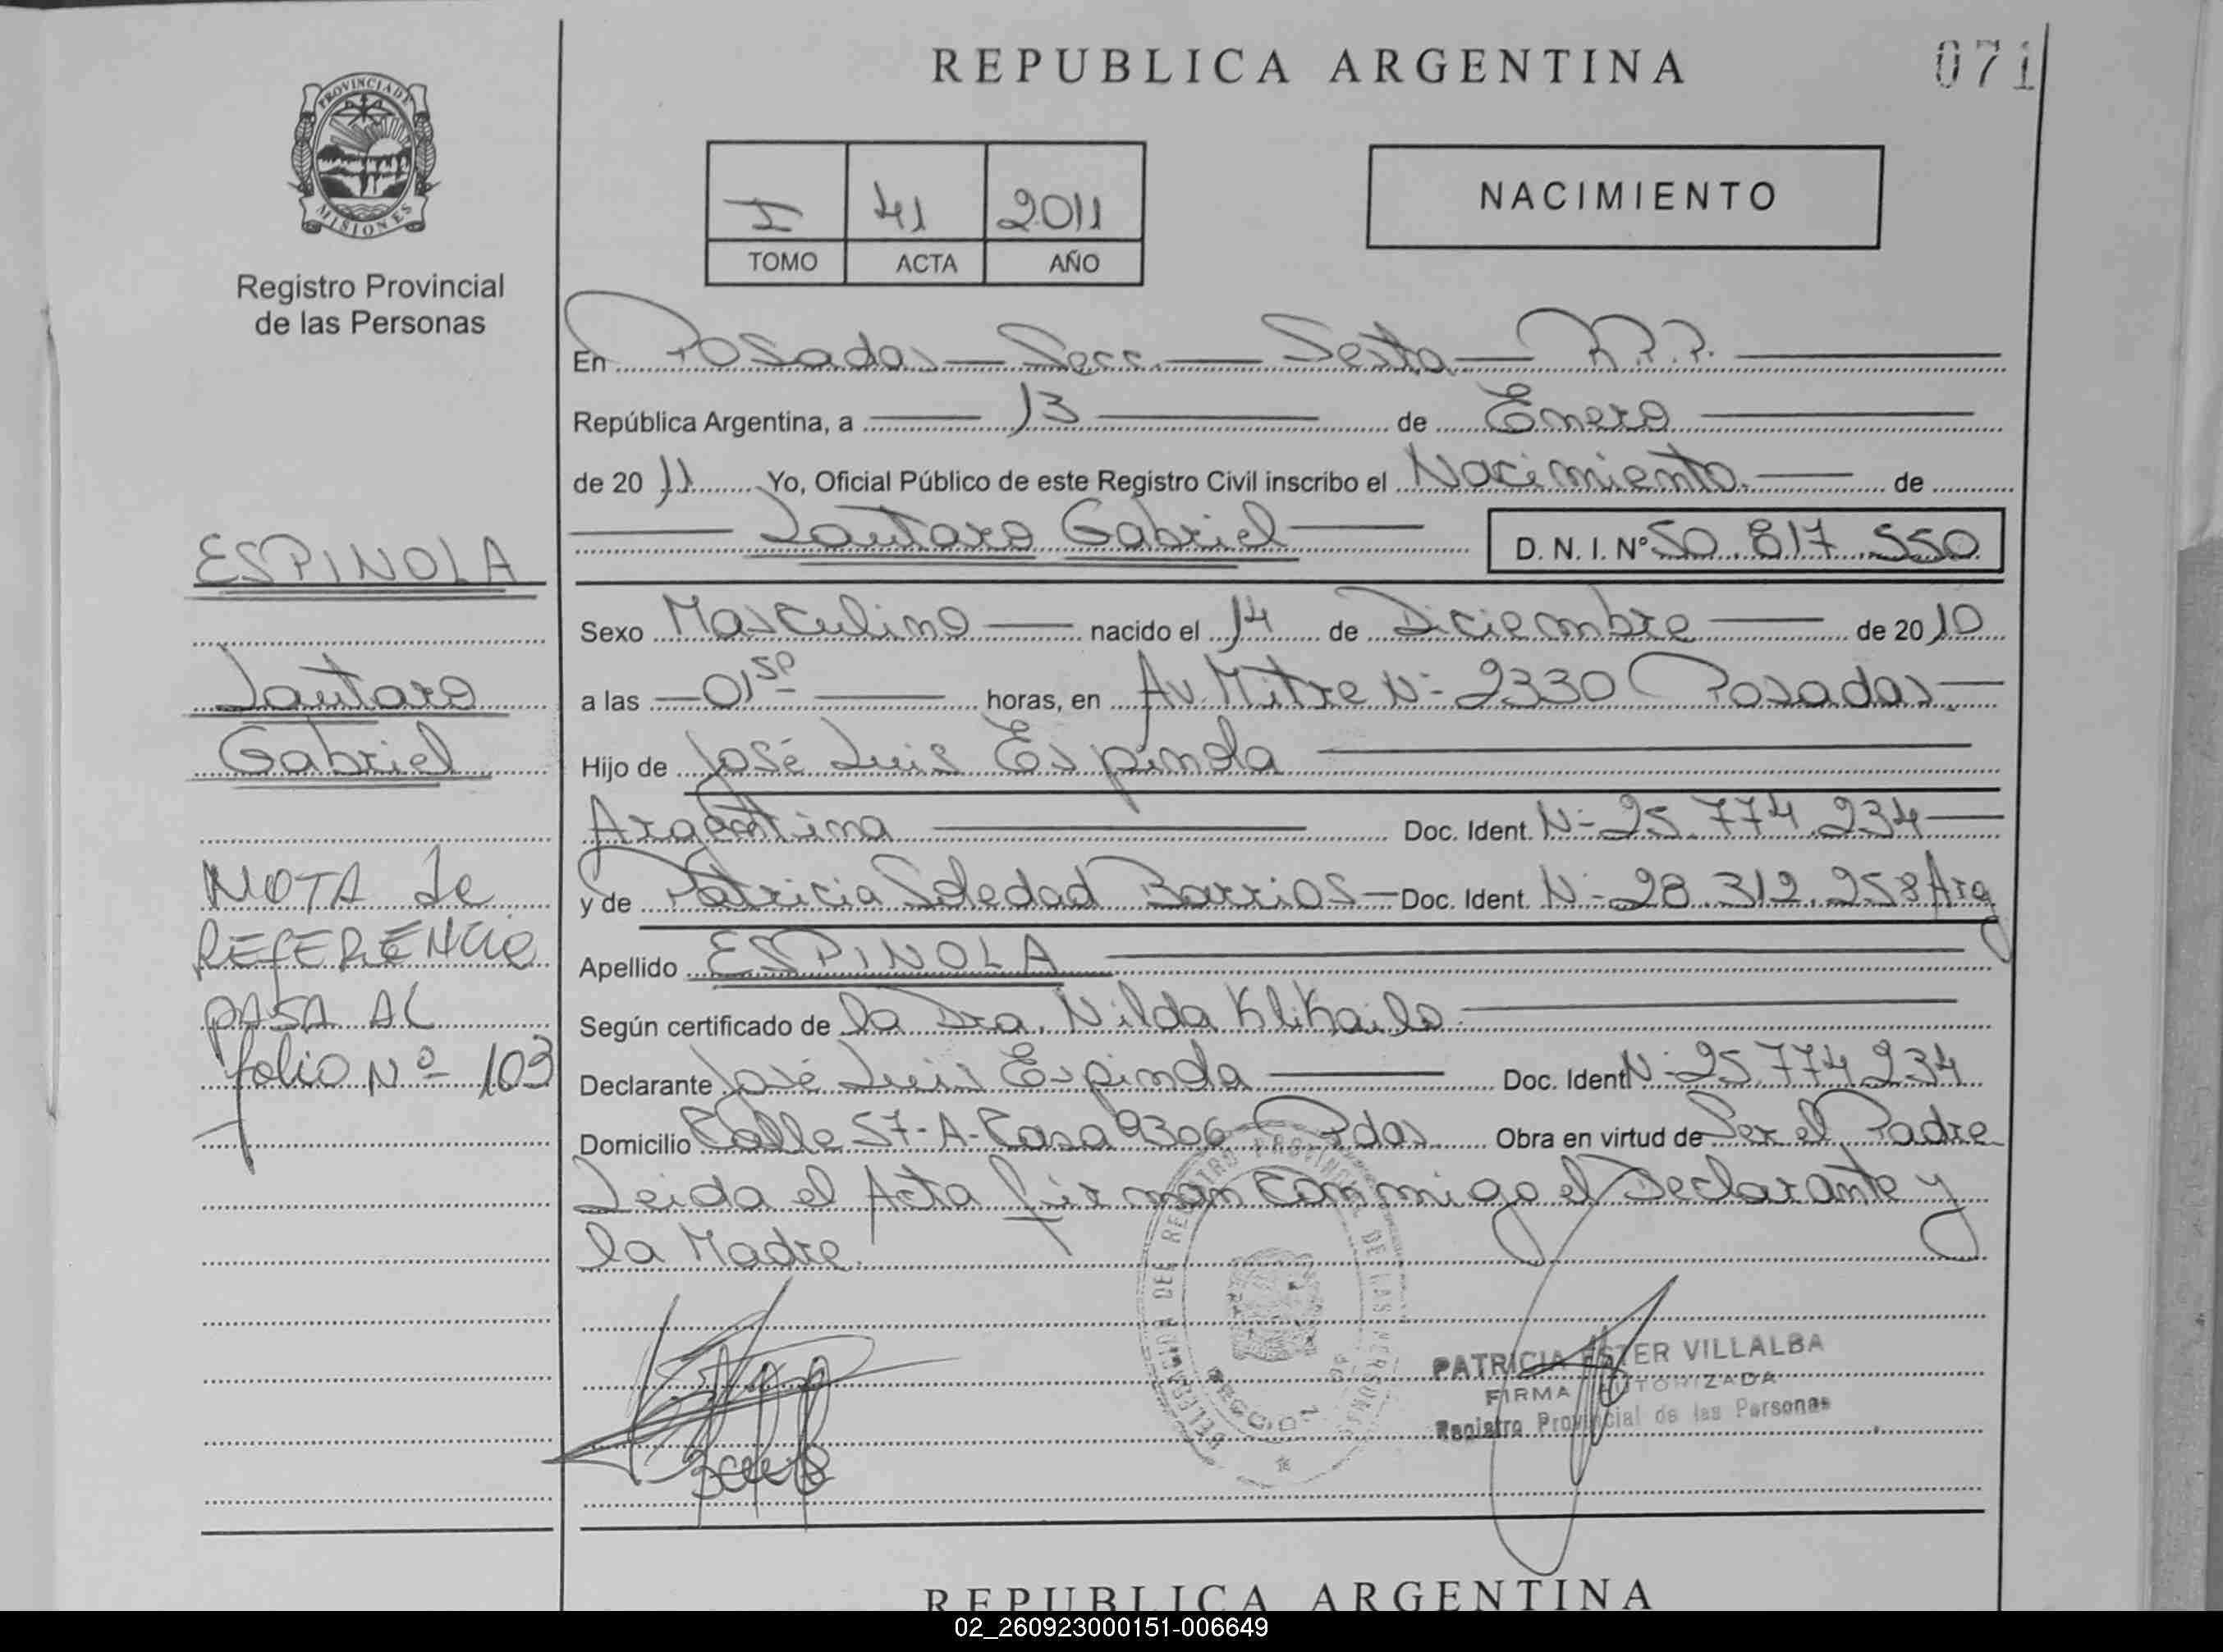 REPUBLICA ARGENTINA
071
PROVINCIA DE
MISIONES
Registro Provincial
de las Personas
I 41 2011
TOMO ACTA AÑO
NACIMIENTO
En Posadas Secc. Sexta
República Argentina, a 13 de Enero
de 20 11 Yo, Oficial Público de este Registro Civil inscribo el Nacimiento de
Lautaro Gabriel D. N. I. Nº 50.817.550
Sexo Masculino nacido el 14 de Diciembre de 20 10
a las 01 50 horas, en Av. Mitre Nº 2330 Posadas
Hijo de José Luis Espinola
Argentina Doc. Ident. Nº 25.774.234
y de Patricia Soledad Barrios Doc. Ident. Nº 28.312.258 Arg
Apellido ESPINOLA
Según certificado de la Dra. Nilda
Declarante José Luis Espinola Doc. Ident Nº 25.774.234
Domicilio Calle 57-A- Casa 9306 Pdas Obra en virtud de Ser el Padre
Leida el Acta firman conmigo el Declarante y
la Madre.
ESPINOLA
Lautaro
Gabriel
NOTA de
REFERENCIA
PASA AL
folio Nº 103
PATRICIA ESTER VILLALBA
FIRMA AUTORIZADA
Registro Provincial de las Personas
REPUBLICA ARGENTINA
02_260923000151-006649